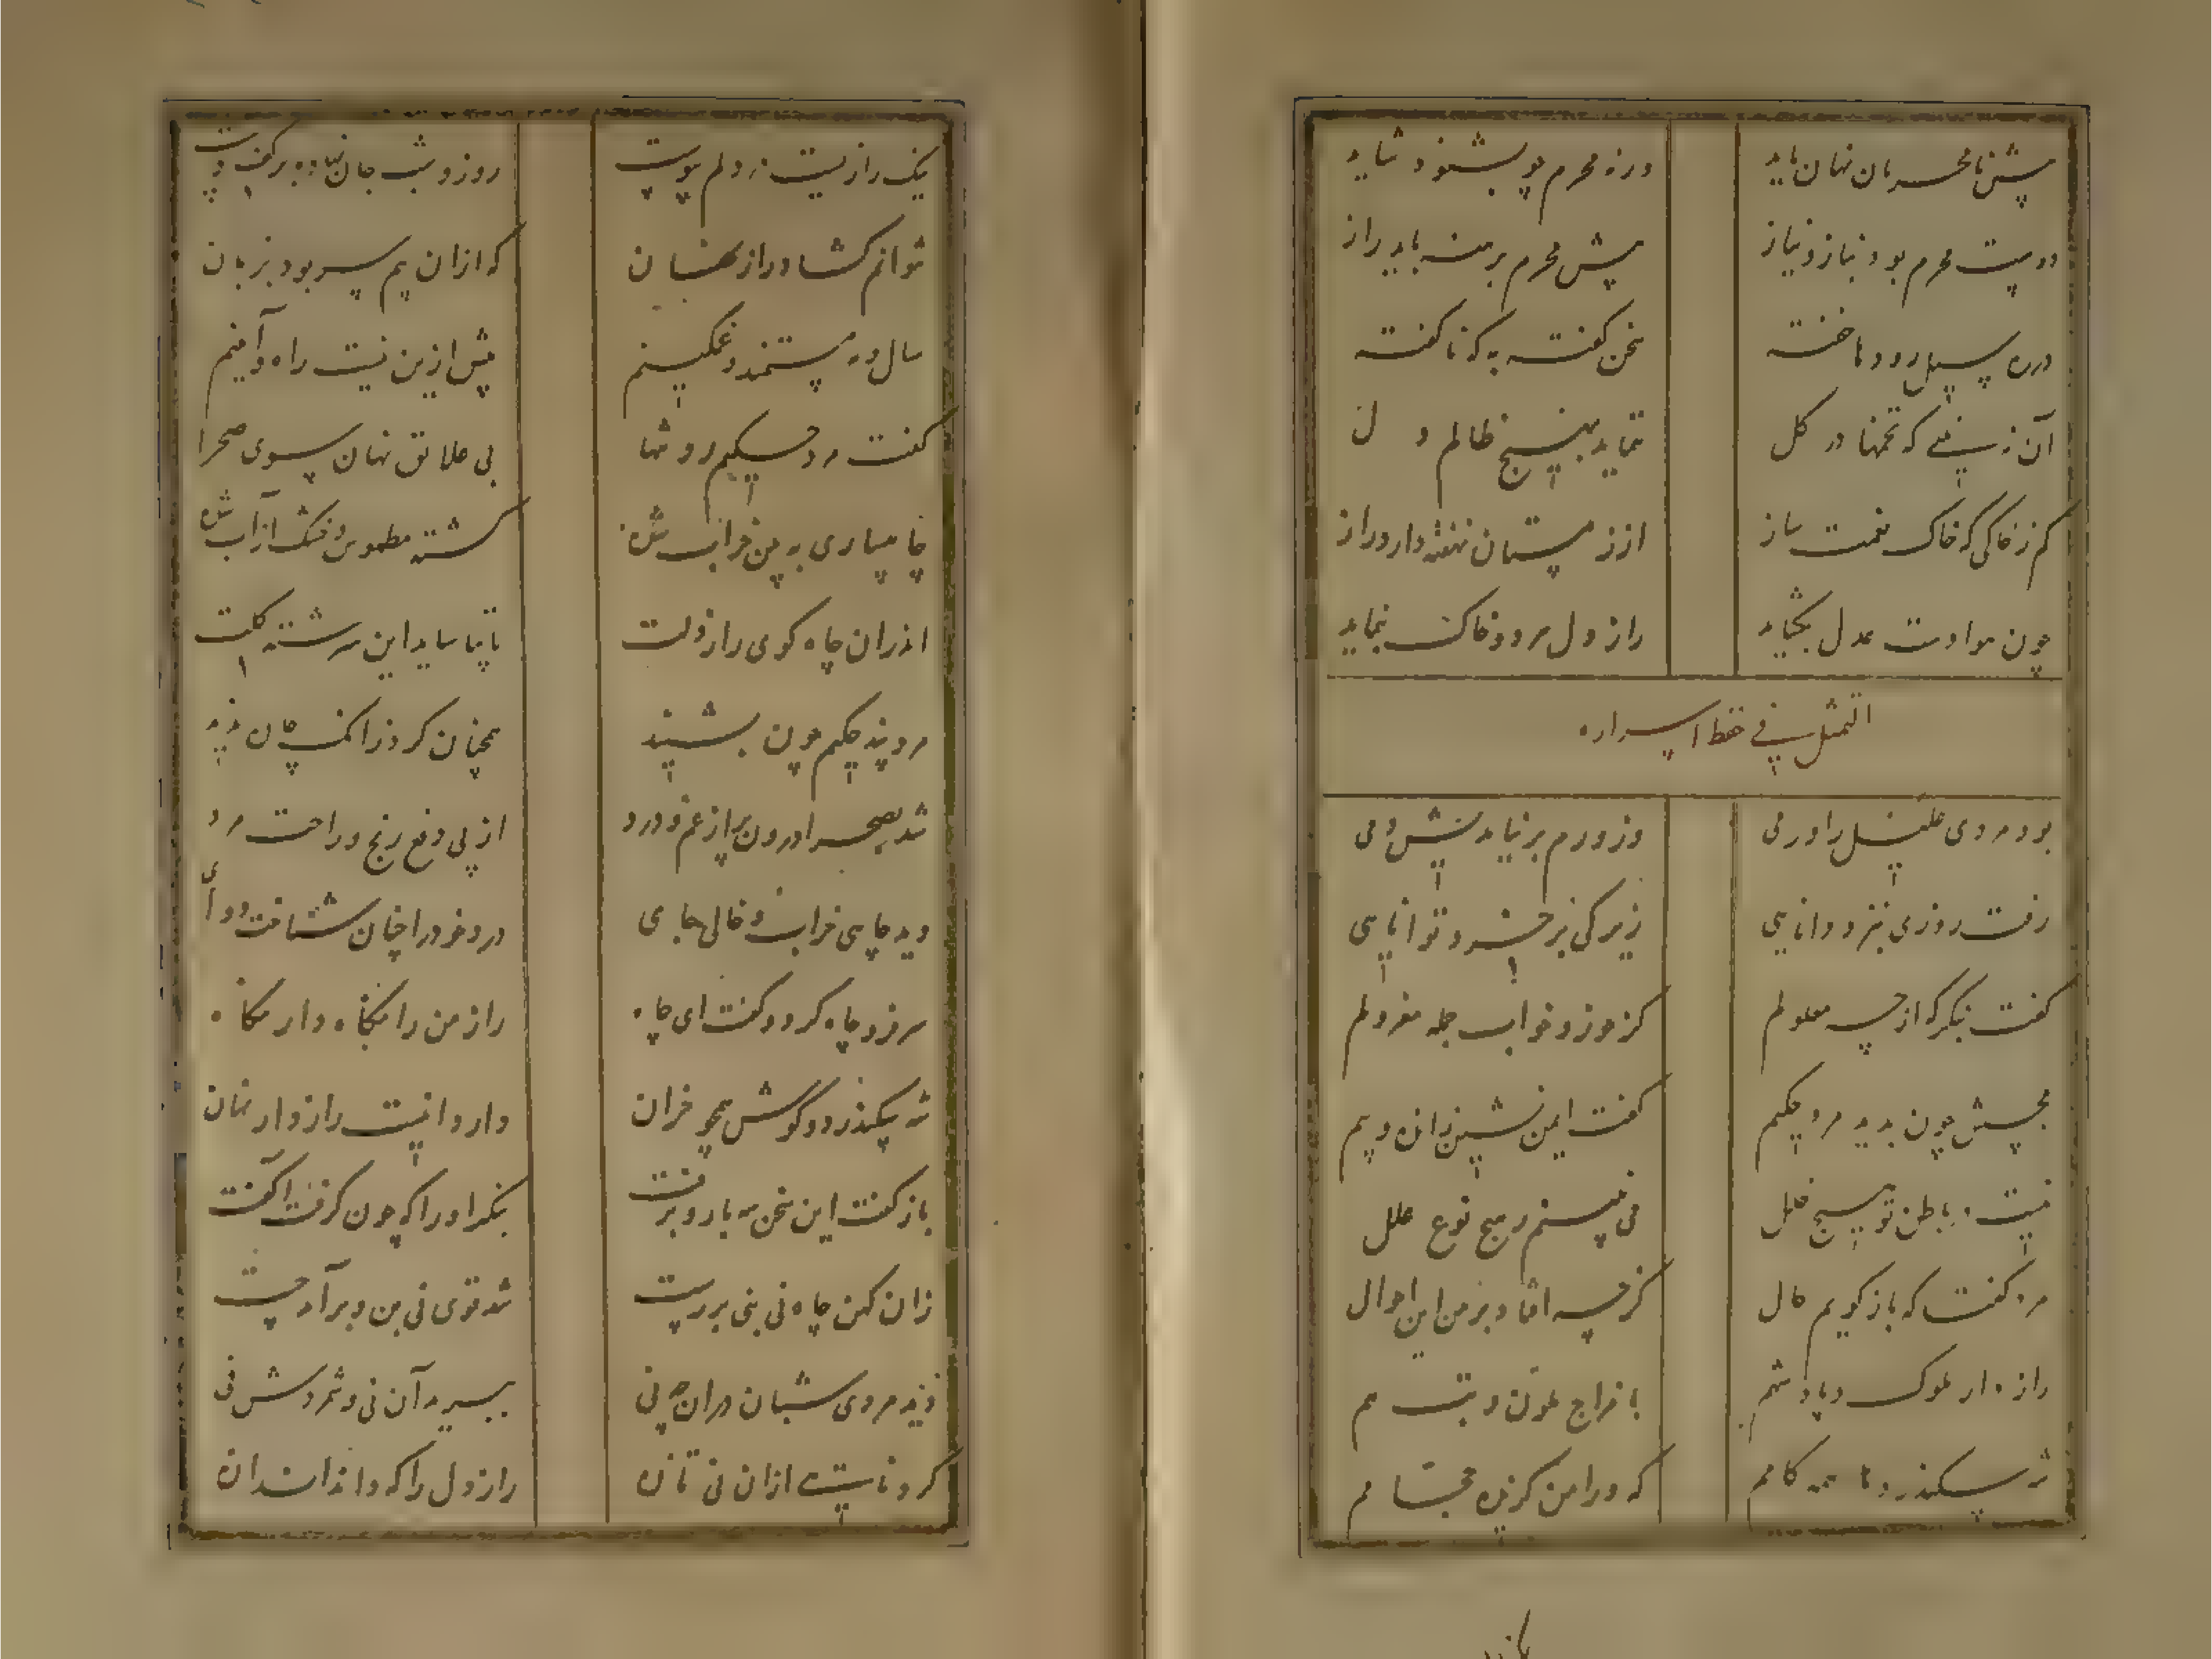 پیش نامحرمان نهان باید ورنه محرم چو بشنود شاید
دوست محرم بود بناز و نیاز پیش محرم برهنه باید راز
درره سیل رود ناخفته سخن گفته به که ناگفته
آن زمینی که تخمها در گل ننماید بهیچ ظالم دل
کم ز خاکی که خاک نعمت ساز از زمستان نهفته دارد راز
چون هوا دست عدل بگشاید راز دل مرو را خاک بنماید
التمثیل فی حفظ اسراره
بود مردی علیل را ورمی وز ورم برنیامدیش دمی
رفت روزی بنزد دانایی زیرکی پرخرد توانایی
گفت بنگر که از چه معلولم کز خور و خواب جمله معزولم
مجسش چون بدید مرد حکیم گفت ایمن نشین ز انده و بیم
نیست در باطن تو هیچ خلل می نبینم ز هیچ نوع علل
مرد گفت که باز گویم حال کز چه افتاد بر من این احوال
راز دار ملوک و پادشهم با مزاج ملون و تبهم
شه سکندر دهد همه کامم که ورا من گزیده حجامم
لیک رازیست در دلم پیوست روز و شب جان نهاده بر کف دست
نتوانم گشاد راز نهان که ازان بیم سر بود بزبان
سال و مه مستمند و غمگینم پیش ازین نیست راه و آیینم
گفت مرد حکیم رو تنها بی علایق نهان سوی صحرا
چاهساری ببین خراب شده گشته مطموس و خشک از آب شده
اندران چاه گوی راز دلت تا بیاساید این سرشته گلت
مرد پند حکیم چون بشنید همچنان کرد زانک چاره ندید
شد بصحرا درون پر از غم و درد از پی دفع رنج و راحت مرد
دید چاهی خراب و خالی جای درد خود را چنان شناخت دوای
سر فرو چاه کرد و گفت ای چاه راز من را نگاه دار نگاه
شه سکندر دو گوش همچو خران دارد اینست راز دار نهان
باز گفت این سخن سه بار و برفت بنگر او را که چون گرفت آگفت
زان کهن چاه نی بنی بررست شد قوی نی بن و برآمد چست
دید مردی شبان دران چه نی ببرید آن نی و شمردش فی
کرد نایی ازان نی تازه راز دل را که داند اندازه